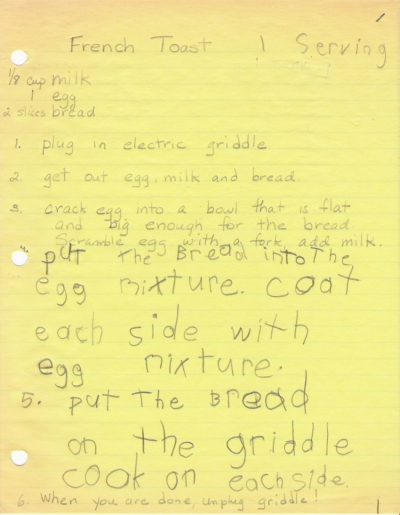 French Toast 1 Serving
1/8 cup milk
1 egg
2 slices bread
1. plug in electric griddle
2. get out egg, milk and bread.
3. crack egg into a bowl that is flat
and big enough for the bread.
Scramble egg with a fork, add milk.
4. put The Bread into The
egg mixture. coat
each side with
egg mixture.
5. put The Bread
on the griddle
cook on each side.
6. When you are done, unplug griddle!